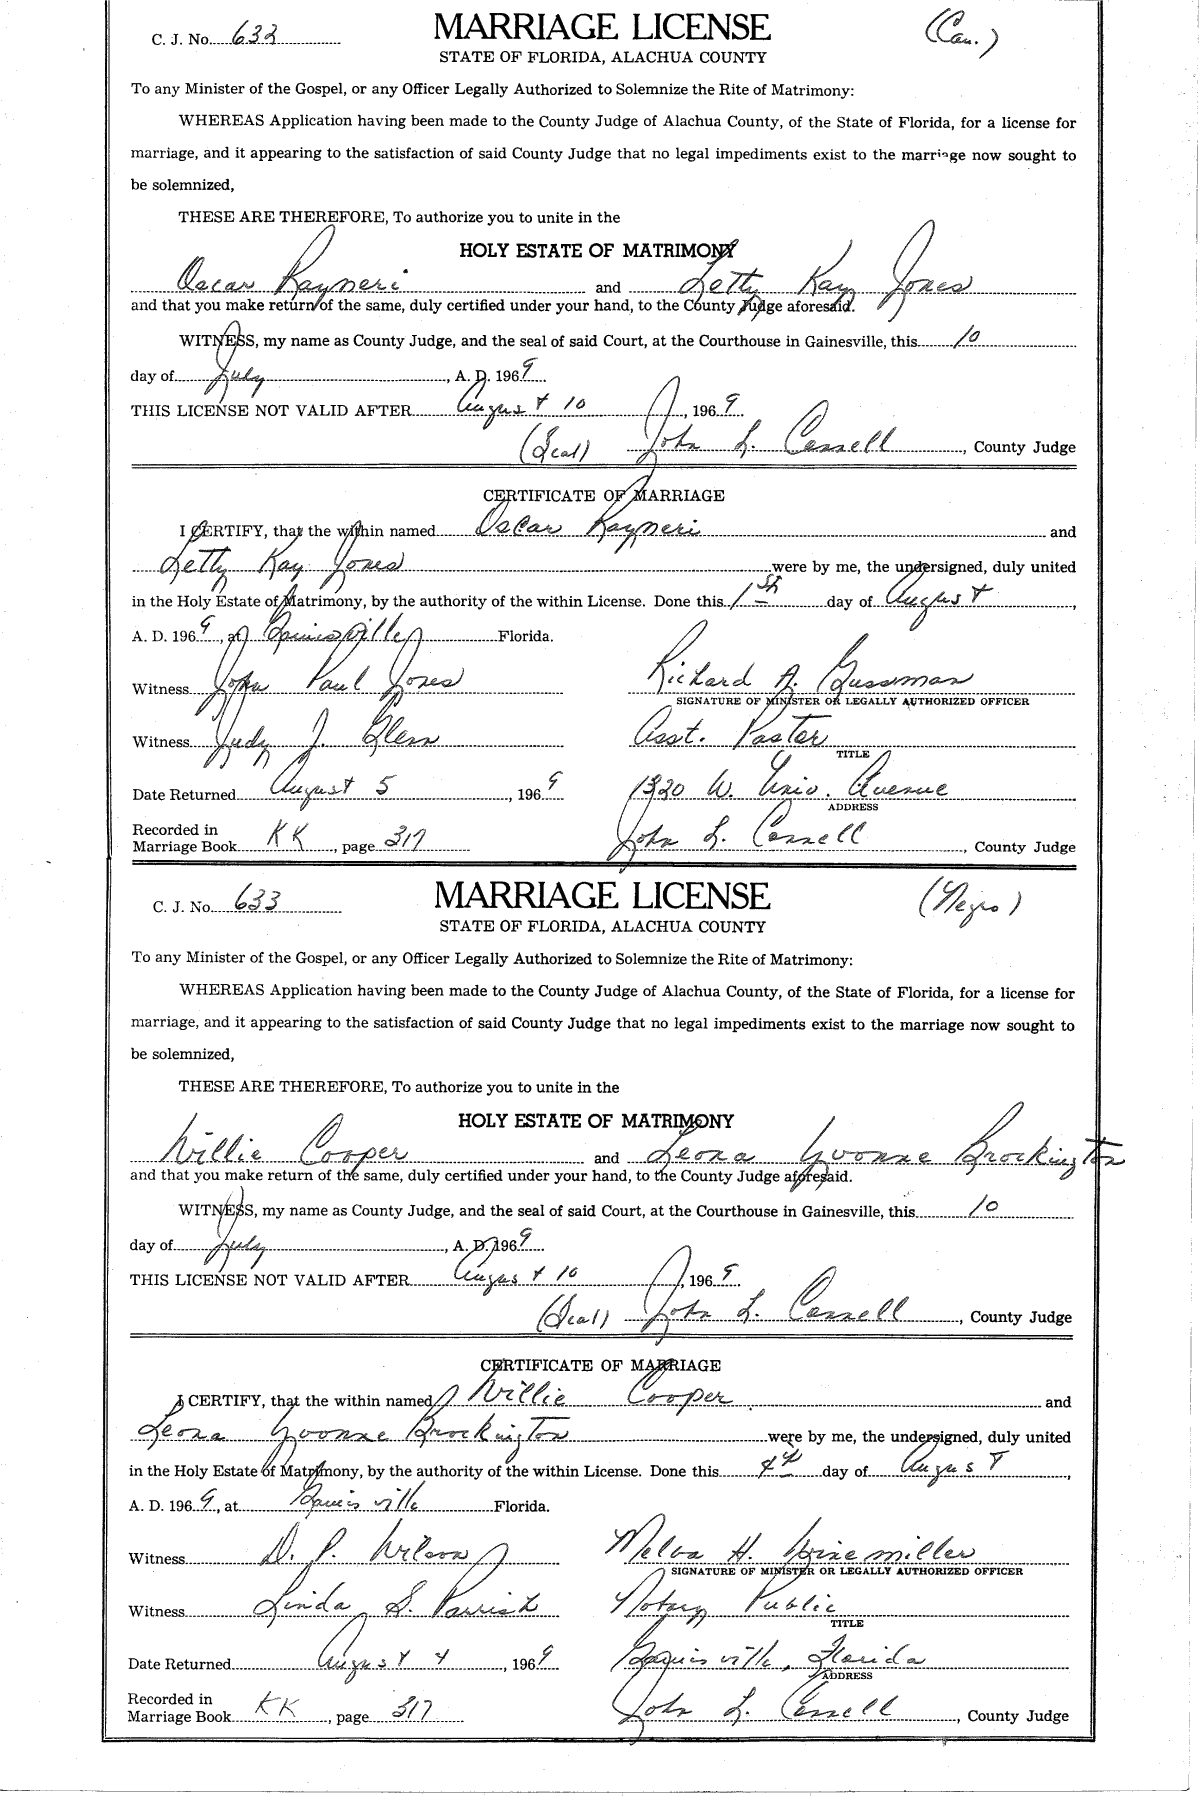 C. J. No. 632 MARRIAGE LICENSE (Cau.)
STATE OF FLORIDA, ALACHUA COUNTY
To any Minister of the Gospel, or any Officer Legally Authorized to Solemnize the Rite of Matrimony:
WHEREAS Application having been made to the County Judge of Alachua County, of the State of Florida, for a license for
marriage, and it appearing to the satisfaction of said County Judge that no legal impediments exist to the marriage now sought to
be solemnized,
THESE ARE THEREFORE, To authorize you to unite in the
HOLY ESTATE OF MATRIMONY
Oscar Rayneri and Letty Kay Jones
and that you make return of the same, duly certified under your hand, to the County Judge aforesaid.
WITNESS, my name as County Judge, and the seal of said Court, at the Courthouse in Gainesville, this 10
day of July, A. D. 1969
THIS LICENSE NOT VALID AFTER August 10, 1969
(Seal) John L. Connell, County Judge
CERTIFICATE OF MARRIAGE
I CERTIFY, that the within named Oscar Rayneri and
Letty Kay Jones were by me, the undersigned, duly united
in the Holy Estate of Matrimony, by the authority of the within License. Done this 1st day of August,
A. D. 1969, at Gainesville Florida.
Witness John Paul Jones Richard A. Gussman
SIGNATURE OF MINISTER OR LEGALLY AUTHORIZED OFFICER
Witness Judy J. Glenn Asst. Pastor
TITLE
Date Returned August 5, 1969 1320 W. Univ. Avenue
ADDRESS
Recorded in
Marriage Book KK, page 317 John L. Connell, County Judge
C. J. No. 633 MARRIAGE LICENSE (Negro)
STATE OF FLORIDA, ALACHUA COUNTY
To any Minister of the Gospel, or any Officer Legally Authorized to Solemnize the Rite of Matrimony:
WHEREAS Application having been made to the County Judge of Alachua County, of the State of Florida, for a license for
marriage, and it appearing to the satisfaction of said County Judge that no legal impediments exist to the marriage now sought to
be solemnized,
THESE ARE THEREFORE, To authorize you to unite in the
HOLY ESTATE OF MATRIMONY
Willie Cooper and Leona Yvonne Brockington
and that you make return of the same, duly certified under your hand, to the County Judge aforesaid.
WITNESS, my name as County Judge, and the seal of said Court, at the Courthouse in Gainesville, this 10
day of July, A. D. 1969
THIS LICENSE NOT VALID AFTER August 10, 1969
(Seal) John L. Connell, County Judge
CERTIFICATE OF MARRIAGE
I CERTIFY, that the within named Willie Cooper and
Leona Yvonne Brockington were by me, the undersigned, duly united
in the Holy Estate of Matrimony, by the authority of the within License. Done this 4th day of August,
A. D. 1969, at Gainesville Florida.
Witness D. P. Wilson Melva H. Winemiller
SIGNATURE OF MINISTER OR LEGALLY AUTHORIZED OFFICER
Witness Linda S. Parrish Notary Public
TITLE
Date Returned August 4, 1969 Gainesville, Florida
ADDRESS
Recorded in
Marriage Book KK, page 317 John L. Connell, County Judge